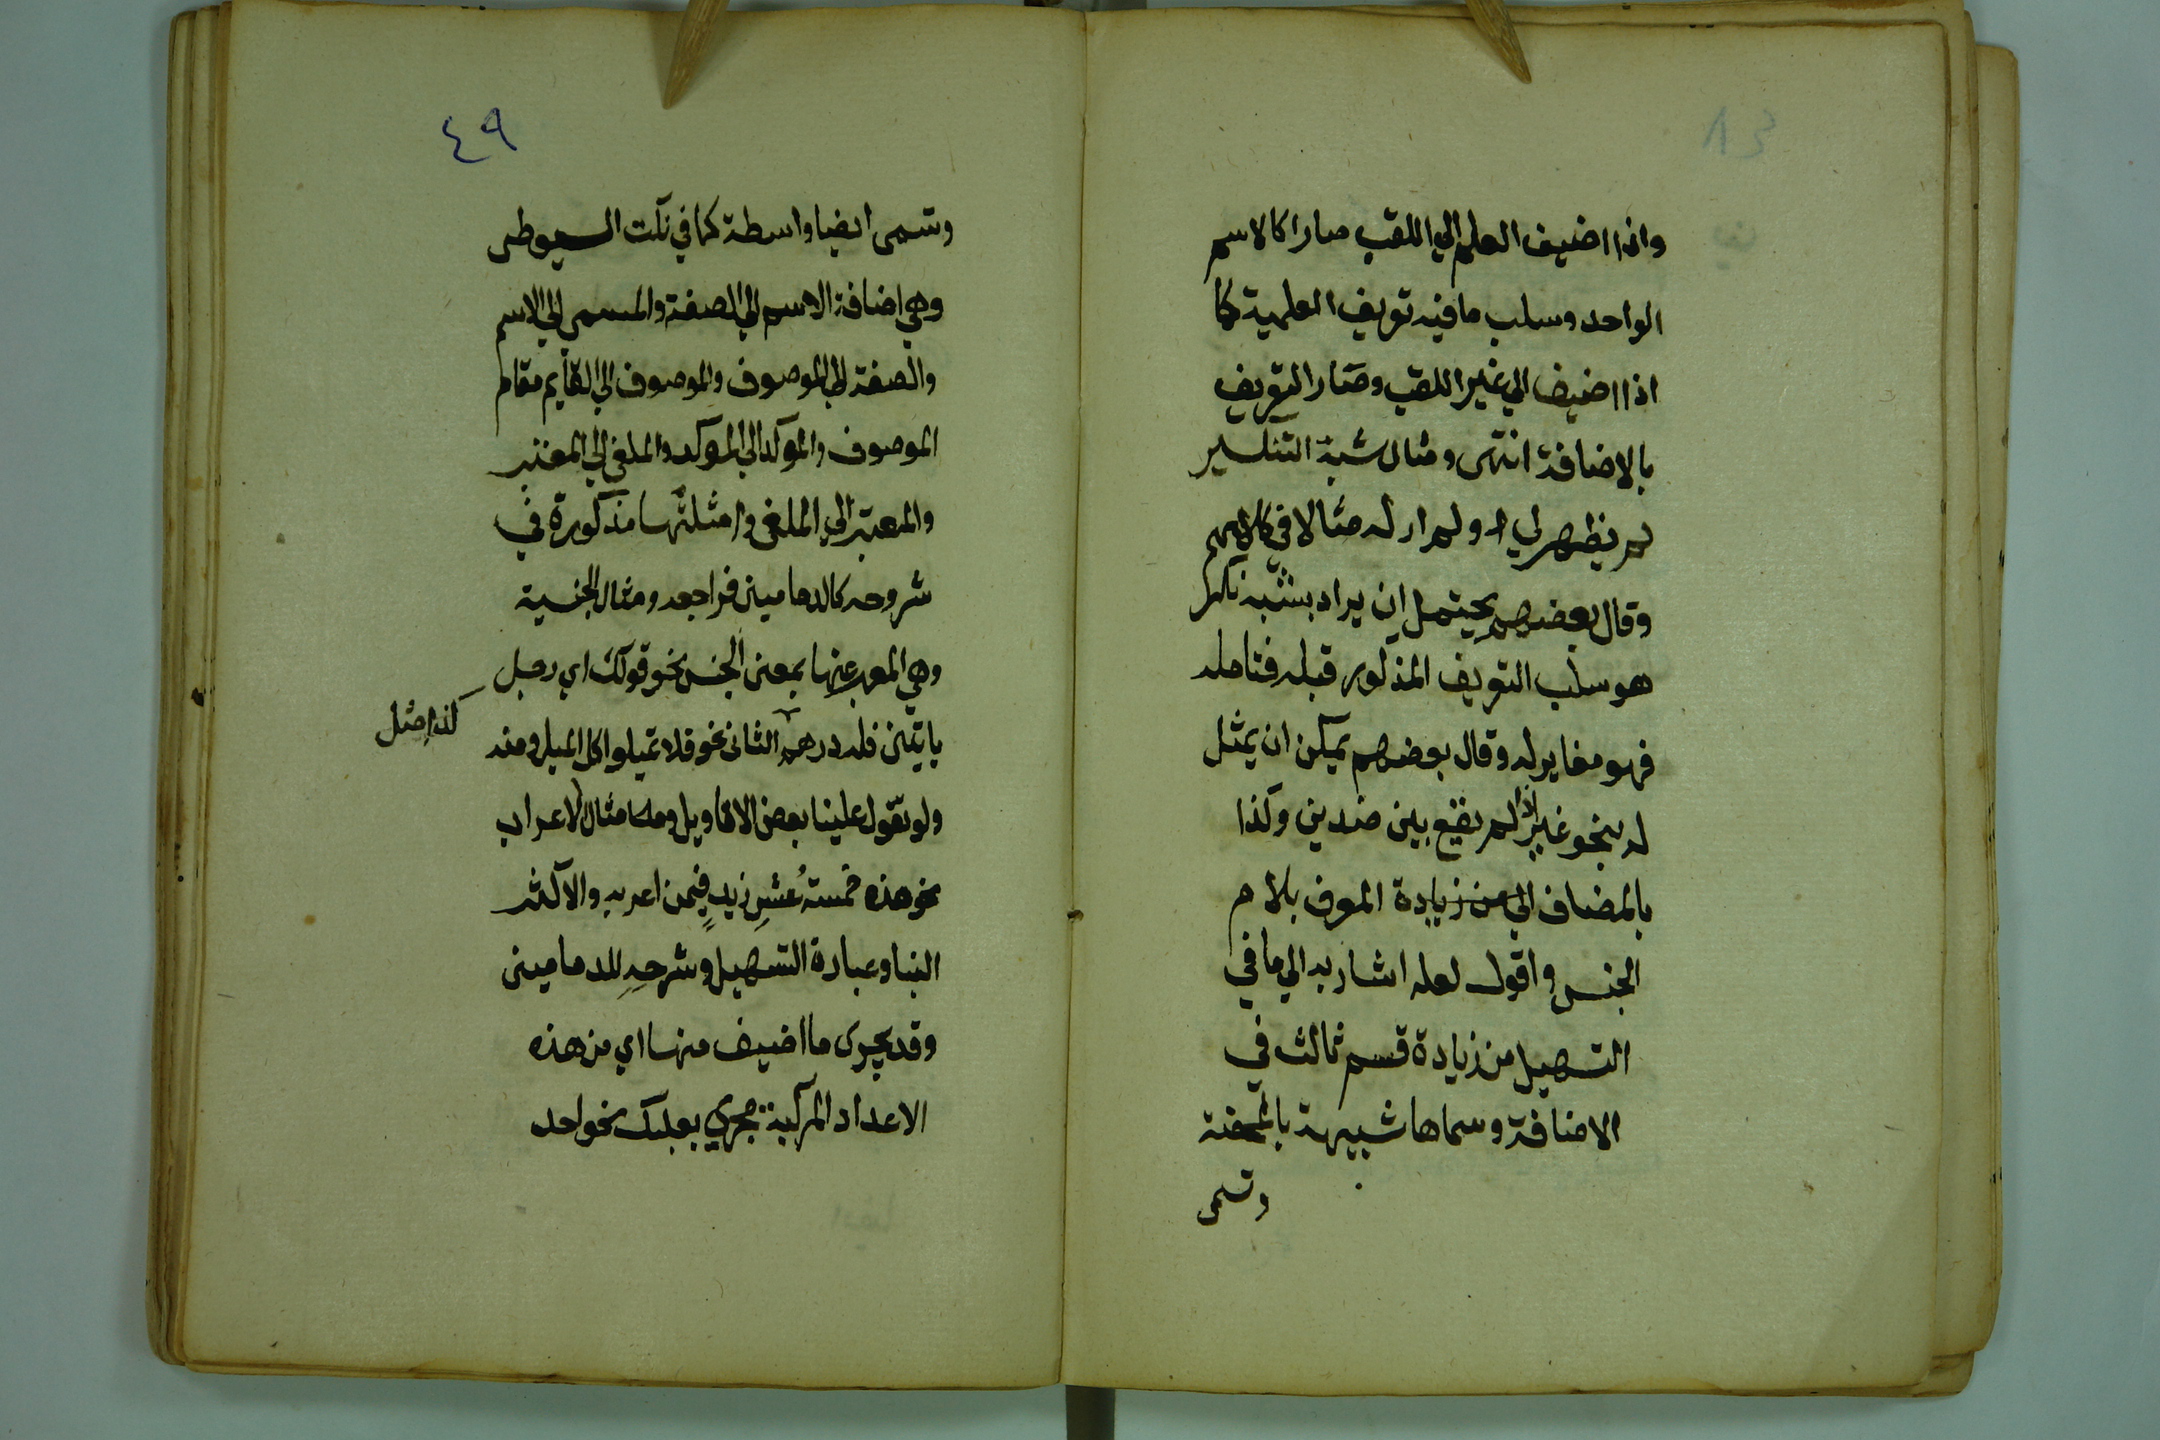 واذا اضيف العلم الي اللقب صارا كالاسم
الواحد وسلب مافيه تعريف العلمية كما
اذا اضيف الي غير اللقب وصار التعريف
بالاضافة انتهى ومثال شبة التنكير
لم يظهر لي اه ولم ار له مثالا في كلامهم
وقال بعضهم يحتمل ان يراد بشبه نكر
هو سلب التعريف المذكور قبله فتامله
فهو مغاير له وقال بعضهم يمكن ان يمثل
له بنحو غير اذا لم يقع بين ضدين وكذا
بالمضاف الي من زيادة المعرف بلام
الجنس واقول لعله اشار به الي ما في
التسهيل من زيادة قسم ثالث في
الاضافة وسماها شبيهة بالمحضة
وتسمى
٤٩
وتسمى ايضا واسطة كما في نكت السيوطى
وهي اضافة الاسم الي الصفة والمسمى الي الاسم
والصفة الي الموصوف والموصوف الي القايم مقام
الموصوف والموكد الي الموكد والملغى الي المعتبر
والمعتبر الي الملغى وامثلتها مذكورة في
شروحه كالدمامينى فراجعه ومثال الجنسية
وهي المعبر عنها بمعنى الجنس نحو قولك اي رجل
ياتينى فله درهم الثانى نحو فلا تميلوا كل الميل ومنه
كذا مثل
ولو تقول علينا بعض الاقاويل ومثال الاعراب
نحو هذه خمسة عشر زيد فيمن اعربه والاكثر
البنا وعبارة التسهيل وشرحه للدمامينى
وقد يجرى ما اضيف منها اي من هذه
الاعداد المركبة مجري بعلبك نحو احد